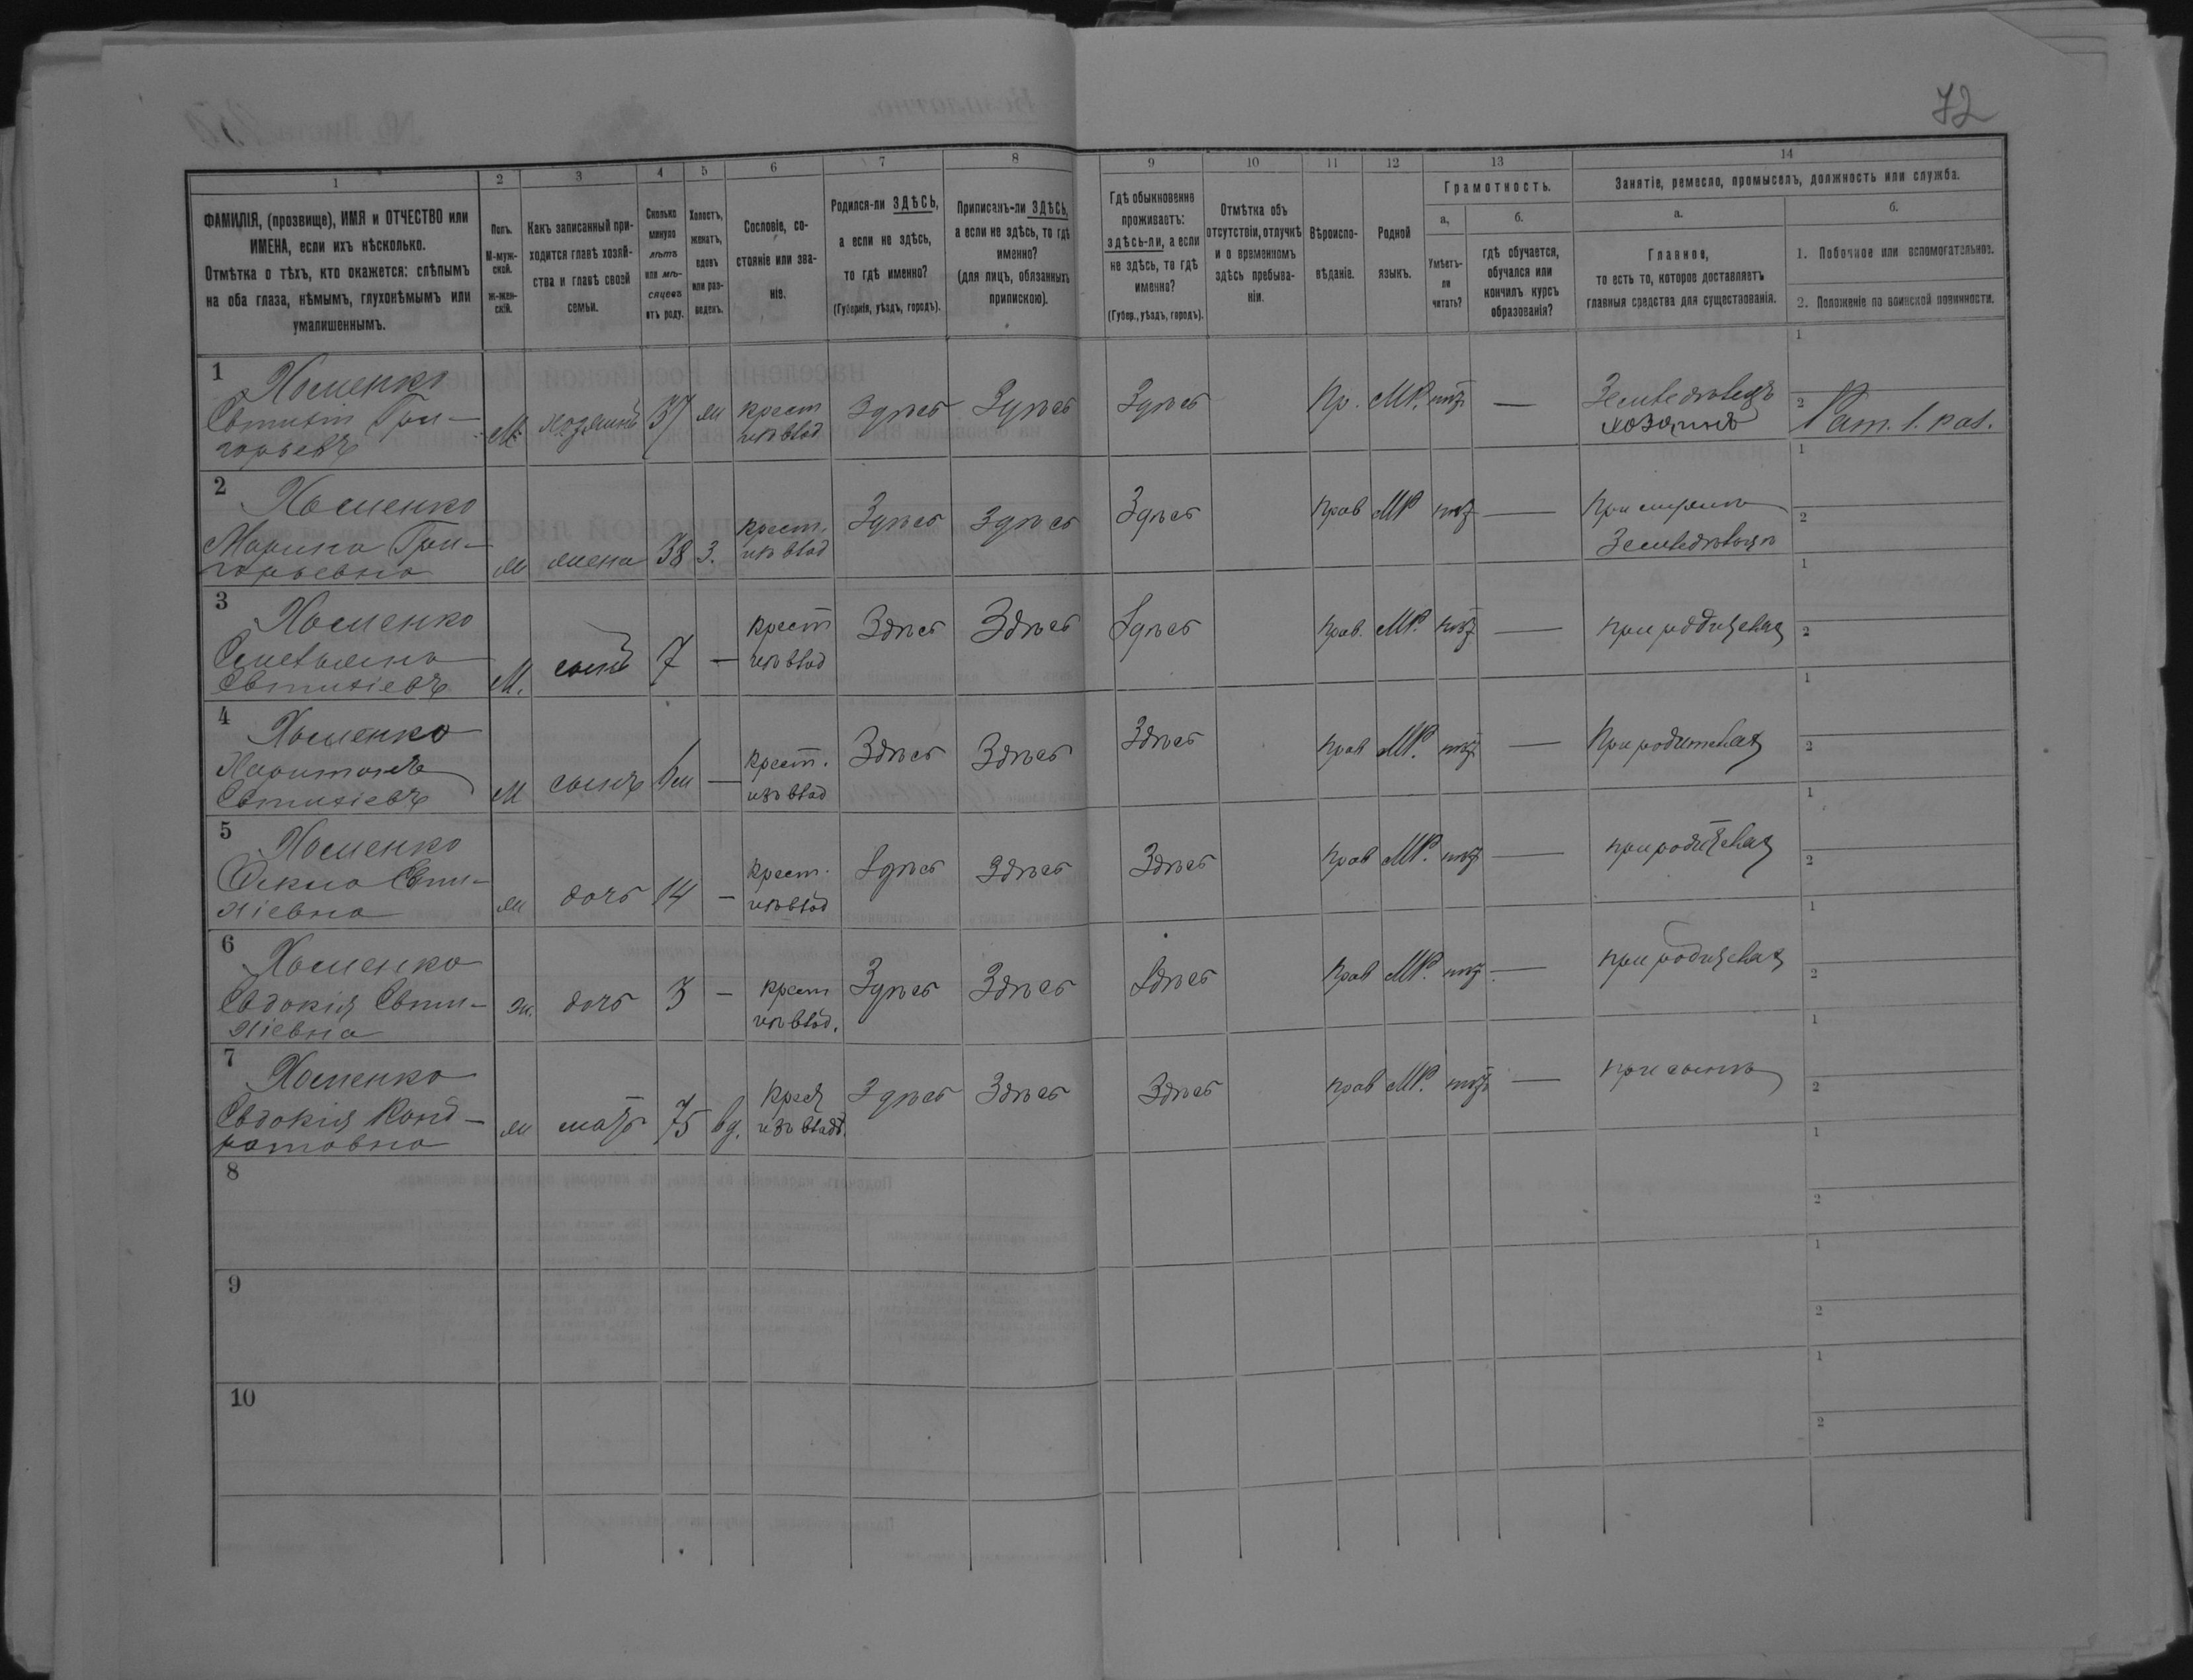 72
1 2 3 4 5 6 7 8 9 10 11 12 13 14
ФАМИЛІЯ, (прозвище), ИМЯ и ОТЧЕСТВО или
ИМЕНА, если ихъ нѣсколько.
Отмѣтка о тѣхъ, кто окажется: слѣпымъ
на оба глаза, нѣмымъ, глухонѣмымъ или
умалишеннымъ.
Полъ.
М-муж-
ской.
Ж-жен-
скій.
Какъ записанный при-
ходится главѣ хозяй-
ства и главѣ своей
семьи.
Сколько
минуло
лѣтъ
или мѣ-
сяцевъ
отъ роду.
Холостъ,
женатъ,
вдовъ
или раз-
веденъ.
Сословіе, со-
стояніе или зва-
ніе.
Родился-ли ЗДѢСЬ,
а если не здѣсь,
то гдѣ именно?
(Губернія, уѣздъ, городъ).
Приписанъ-ли ЗДѢСЬ,
а если не здѣсь, то гдѣ
именно?
(для лицъ, обязанныхъ
припискою).
Гдѣ обыкновенно
проживаетъ:
здѣсь-ли, а если
не здѣсь, то гдѣ
именно?
(Губер., уѣздъ, городъ).
Отмѣтка объ
отсутствіи, отлучкѣ
и о временномъ
здѣсь пребыва-
ніи.
Вѣроиспо-
вѣданіе.
Родной
языкъ.
Грамотность.
а,
Умѣетъ-
ли
читать?
б.
гдѣ обучается,
обучался или
кончилъ курсъ
образованія?
Занятіе, ремесло, промыселъ, должность или служба.
а.
Главное,
то есть то, которое доставляетъ
главныя средства для существованія.
б.
1. Побочное или вспомогательное.
2. Положеніе по воинской повинности.
1
Хоменко
Евтихій Гри-
горьевъ
М хозяинъ 37 ж крест
изъ влад
Здѣсь Здѣсь Здѣсь Пр. МР. нѣт —
Земледѣлецъ
хозяинъ
1
2 Рат. 1. раз.
2
Хоменко
Марина Гри-
горьевна
ж жена 38 з. крест.
изъ влад
Здѣсь Здѣсь Здѣсь прав МР нѣт —
При мужѣ
Земледѣльцѣ
1
2
3
Хоменко
Евтихіевъ
М. сынъ 7 — крест
изъ влад
Здѣсь Здѣсь Здѣсь прав. МР. нѣт —
при родителях
1
2
4
Хоменко
Харитонъ
Евтихіевъ
М сынъ — крест.
изъ влад
Здѣсь Здѣсь Здѣсь прав МР. нѣт —
При родителях
1
2
5
Хоменко
Фекла Евти-
хіевна
ж дочь 14 — крест.
изъ влад
Здѣсь Здѣсь Здѣсь прав МР. нѣт —
при родителях
1
2
6
Хоменко
Евдокія Евти-
хіевна
ж. дочь 3 — крест
изъ влад.
Здѣсь Здѣсь Здѣсь прав МР. нѣт. —
при родителях
1
2
7
Хоменко
Евдокія Конд-
ратовна
ж мать 75 вд. крест
изъ влад.
Здѣсь Здѣсь Здѣсь прав МР. нѣт —
при сынѣ
1
2
8
1
2
9
1
2
10
1
2